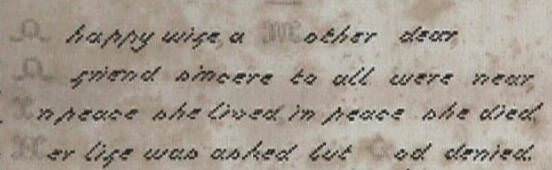 A happy wife, a Mother dear,
A friend sincere to all were near,
In peace she lived, in peace she died,
Her life was asked but God denied.